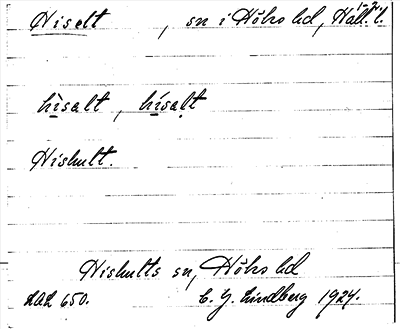 Hiselt, sn i Höks hd, Hall. l.
hìsalt, hísaḷt
Hishult.
Hishults sn, Höks hd
LAL 650. C. G. Lindberg 1924.